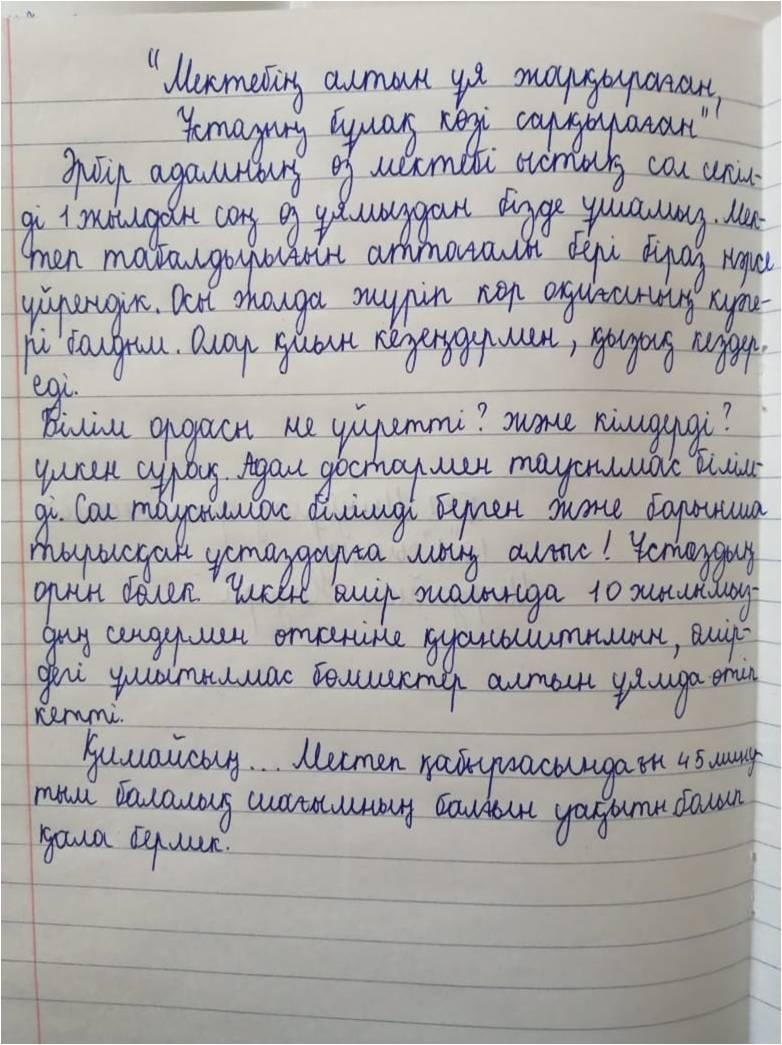 "Мектебің алтын ұя жарқыраған,
Ұстазың бұлақ көзі сарқыраған"
Әрбір адамның өз мектебі ыстық сол секіл-
ді 1 жылдан соң өз ұямыздан бізде ұшамыз. Мек-
теп табалдырығын аттағалы бері біраз нәрсе
үйрендік. Осы жолда жүріп көр оқиғасының күге-
рі болдым. Олар қиын кезеңдермен, қызық кездер
еді.
Білім ордасы не үйретті? және кімдерді?
үлкен сұрақ. Адал достармен таусылмас білім-
ді. Сол таусылмас білімді берген және барынша
тырысқан ұстаздарға мың алғыс! Ұстаздың
орны бөлек. Үлкен өмір жолында 10 жылымыз-
дың сендермен өткеніне қуаныштымын, өмір-
дегі ұмытылмас бөлшектер алтын ұямда өтіп
кетті.
Қимайсың... Мектеп қабырғасындағы 45 мину
тым балалық шағымның балғын уақыты болып
қала бермек.